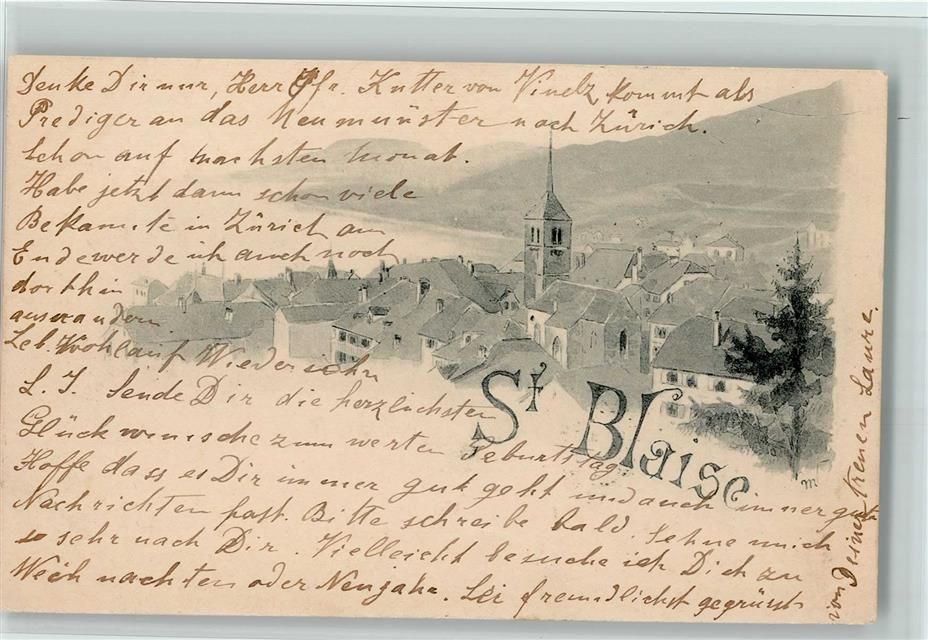 Denke Dir nur, Herr Pfr. Kutter von Vinelz kommt als
Prediger an das Neumünster nach Zürich.
Schon auf nächsten Monat.
Habe jetzt dann schon viele
Bekannte in Zürich am
Ende werde ich auch noch
dorthin
auswandern.
Leb. Wohl auf Wiedersehn
L. I. Sende Dir die herzlichsten
Glückwünsche zum werten Geburtstag.
Hoffe dass es Dir immer gut geht und auch immer gute
Nachrichten hast. Bitte schreibe bald. Sehne mich
so sehr nach Dir. Vielleicht besuche ich Dich zu
Weihnachten oder Neujahr. Sei freundlichst gegrüsst
von Deiner treuen Laure.
St Blaise